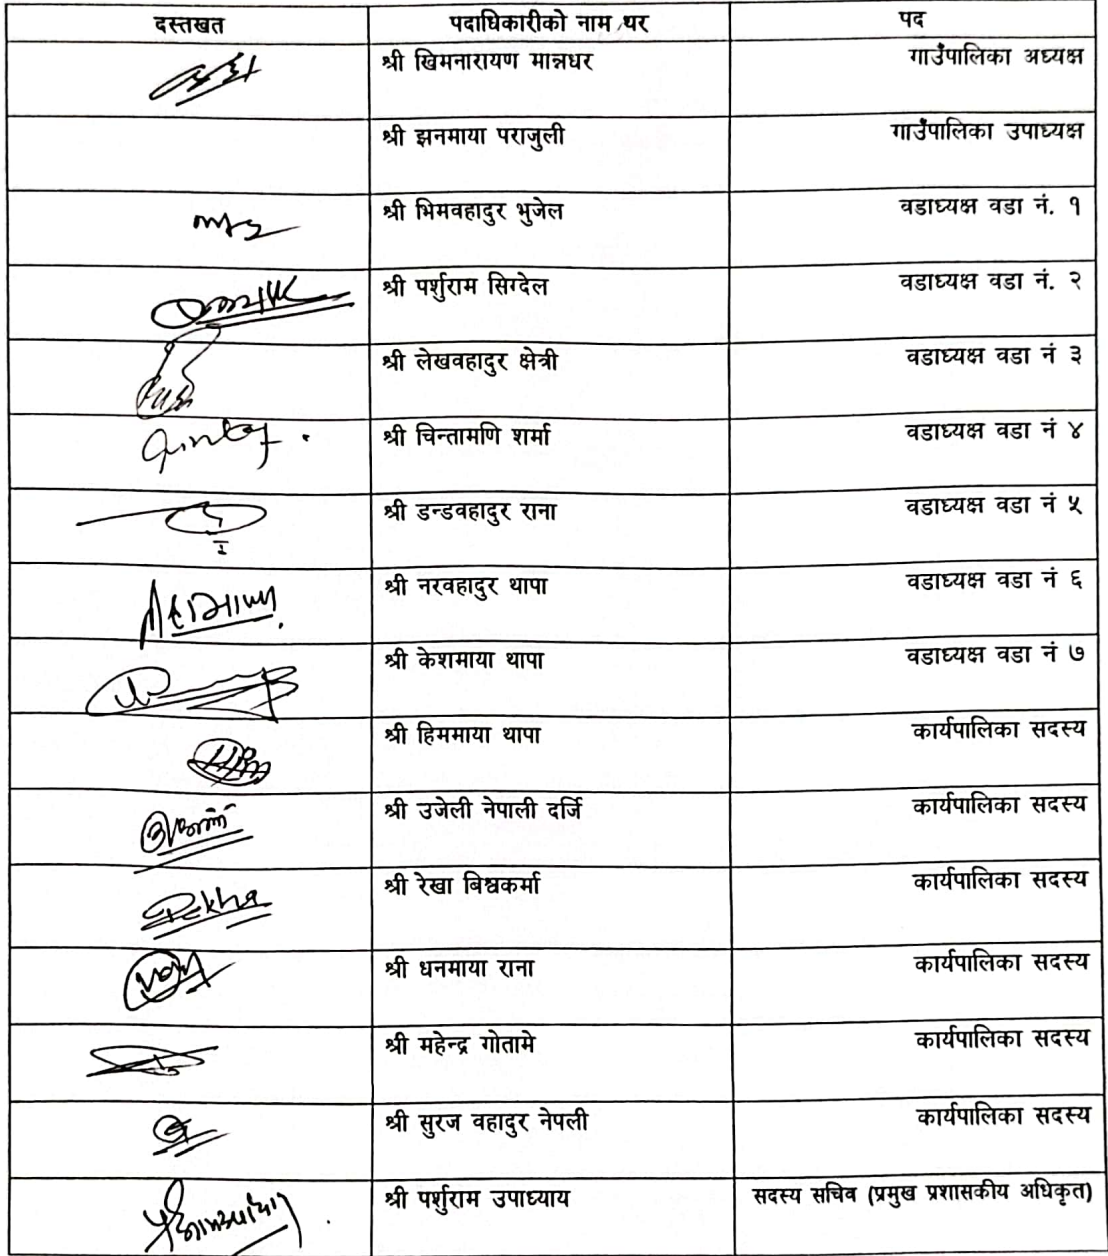 दस्तखत पदाधिकारीको नाम ,थर पद
श्री खिमनारायण मान्नधर गाउँपालिका अध्यक्ष
श्री झनमाया पराजुली गाउँपालिका उपाध्यक्ष
श्री भिमवहादुर भुजेल वडाध्यक्ष वडा नं. १
श्री पर्शुराम सिग्देल वडाध्यक्ष वडा नं. २
श्री लेखवहादुर क्षेत्री वडाध्यक्ष वडा नं ३
श्री चिन्तामणि शर्मा वडाध्यक्ष वडा नं ४
श्री डन्डवहादुर राना वडाध्यक्ष वडा नं ५
श्री नरवहादुर थापा वडाध्यक्ष वडा नं ६
श्री केशमाया थापा वडाध्यक्ष वडा नं ७
श्री हिममाया थापा कार्यपालिका सदस्य
श्री उजेली नेपाली दर्जि कार्यपालिका सदस्य
Rekha श्री रेखा बिश्वकर्मा कार्यपालिका सदस्य
श्री धनमाया राना कार्यपालिका सदस्य
श्री महेन्द्र गोतामे कार्यपालिका सदस्य
श्री सुरज वहादुर नेपली कार्यपालिका सदस्य
श्री पर्शुराम उपाध्याय सदस्य सचिव (प्रमुख प्रशासकीय अधिकृत)